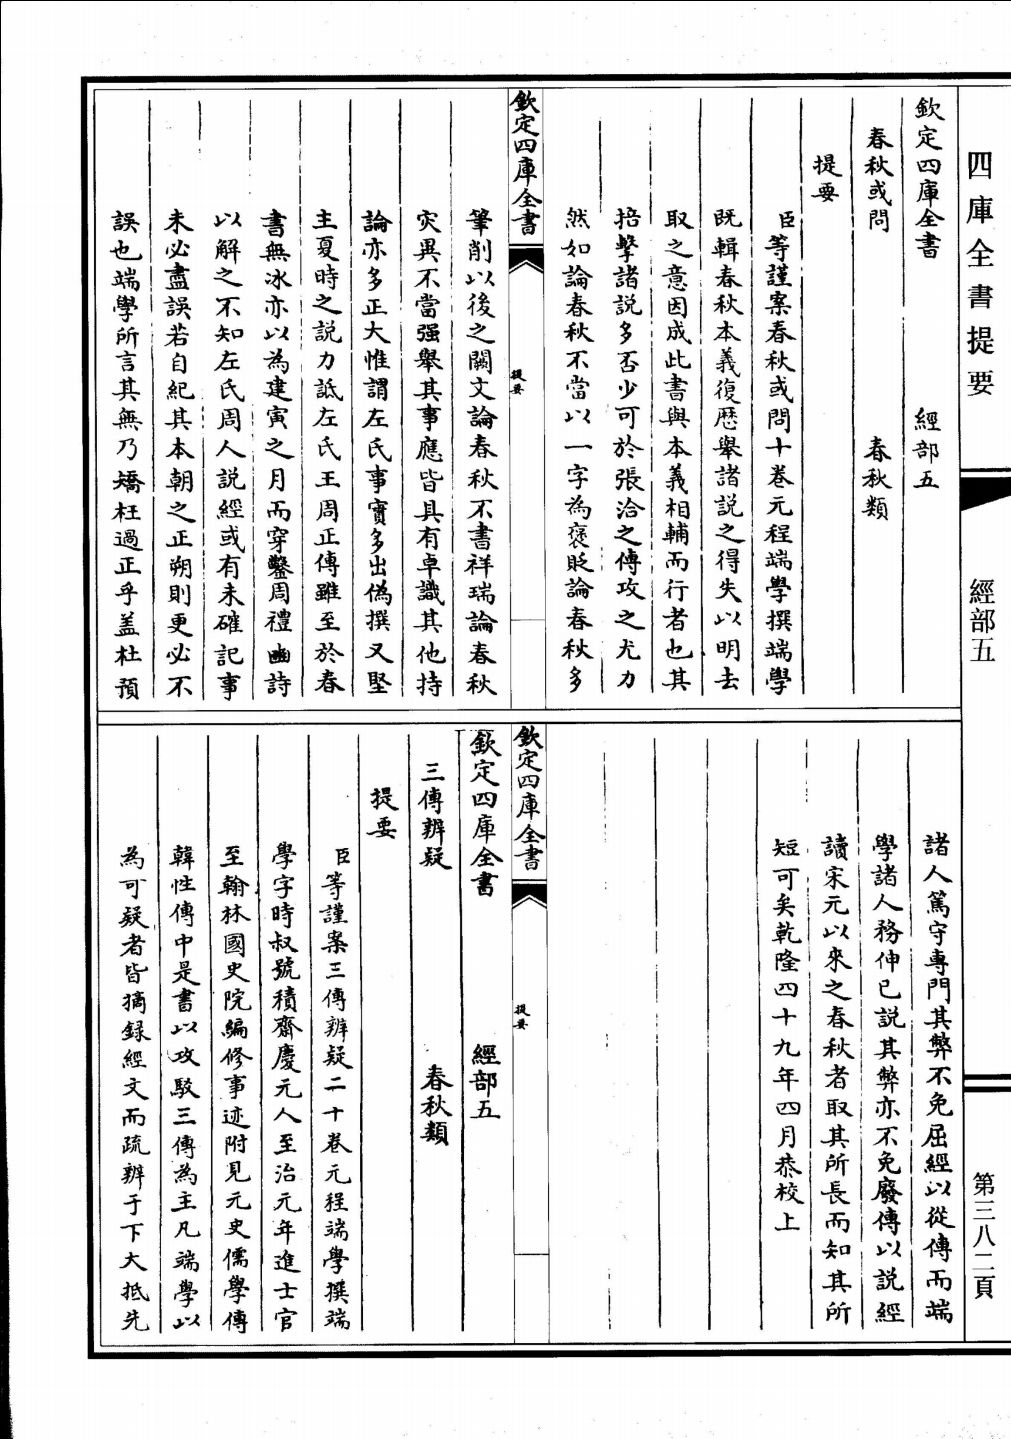 四庫全書提要
經部五
第三八二頁
欽定四庫全書 經部五
春秋或問 春秋類
提要
臣等謹案春秋或問十卷元程端學撰端學
既輯春秋本義復歷舉諸說之得失以明去
取之意因成此書與本義相輔而行者也其
掊擊諸說多否少可於張洽之傳攻之尤力
然如論春秋不當以一字為褒貶論春秋多
欽定四庫全書
提要
筆削以後之闕文論春秋不書祥瑞論春秋
災異不當强舉其事應皆具有卓識其他持
論亦多正大惟謂左氏事實多出偽撰又堅
主夏時之說力詆左氏王周正傳雖至於春
書無冰亦以為建寅之月而穿鑿周禮豳詩
以解之不知左氏周人說經或有未確記事
未必盡誤若自紀其本朝之正朔則更必不
誤也端學所言其無乃矯枉過正乎盖杜預
諸人篤守專門其弊不免屈經以從傳而端
學諸人務伸已說其弊亦不免廢傳以說經
讀宋元以來之春秋者取其所長而知其所
短可矣乾隆四十九年四月恭校上
欽定四庫全書
提要
欽定四庫全書 經部五
三傳辨疑 春秋類
提要
臣等謹案三傳辨疑二十卷元程端學撰端
學字時叔號積齋慶元人至治元年進士官
至翰林國史院編修事迹附見元史儒學傳
韓性傳中是書以攻駁三傳為主凡端學以
為可疑者皆摘錄經文而疏辨于下大抵先